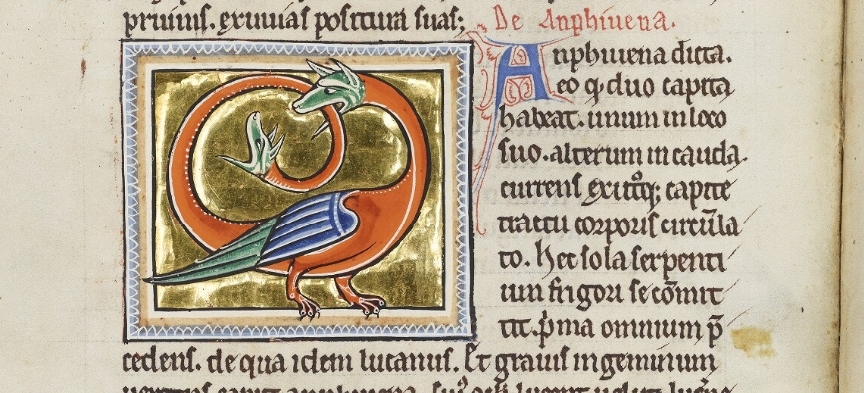 pruinis. exuuias positura suas;
De Anphiuena.
Anphiuena dicta.
eo q̵ duo capita
habeat. unum in loco
suo. alterum in cauda.
currens ex utroq; capite
tractu corporis circūla
to. Hec sola serpenti
um frigori se cōmit
tit. p̄ma omnium p̄
cedens. de qua idem lucanus. Et grauis in geminum